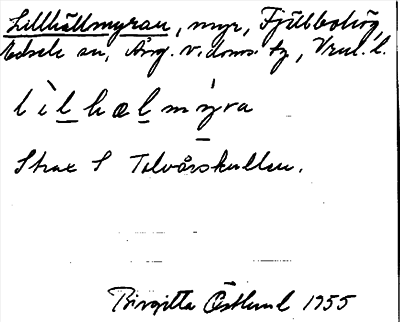 Lillhällmyran, myr, Fjübbohög,
Edsele sn, Ång. v. doms. tg,
lìlhælmy̌ra
Strax S Tolvårskullen.
Birgitta Östlund 1955